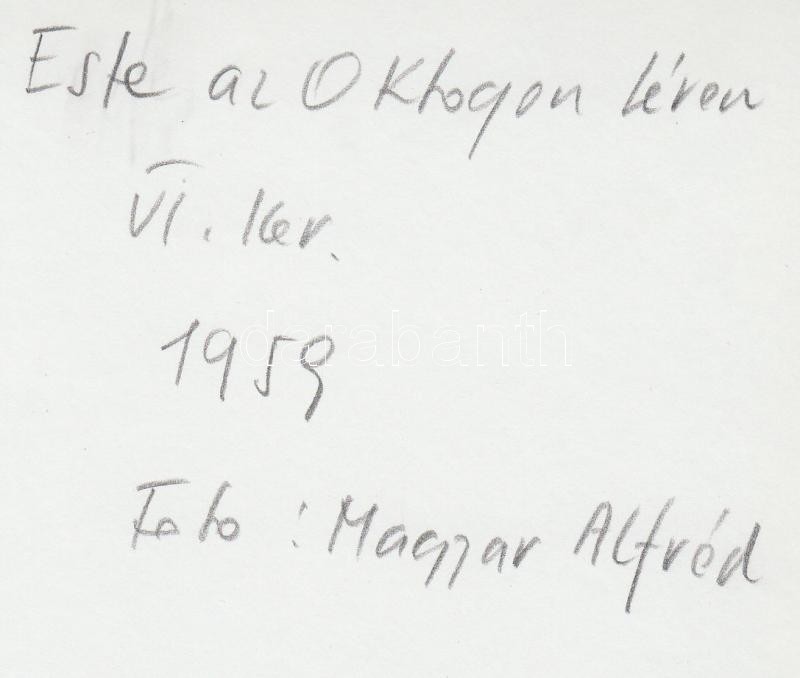 Este az Oktogon téren
VI. ker.
1959
darabanth
Foto : Magyar Alfréd